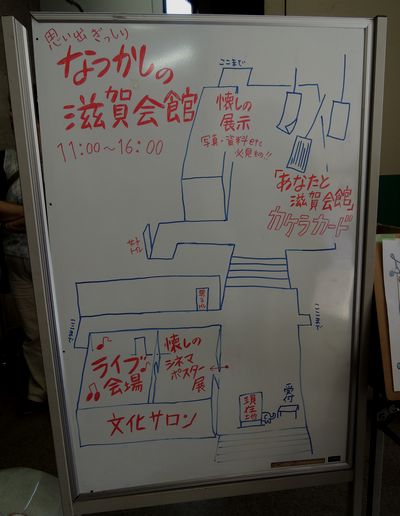 思い出ぎっしり
なつかしの
滋賀会館
11:00〜16:00
ここまで
懐しの
展示
写真・資料etc
必見もの!!
「あなたと
滋賀会館」
カケラカード
女子
トイレ
ここまで
ここまで
ライブ
会場
懐しの
シネマ
ポスター
展
文化サロン
現在地
受付